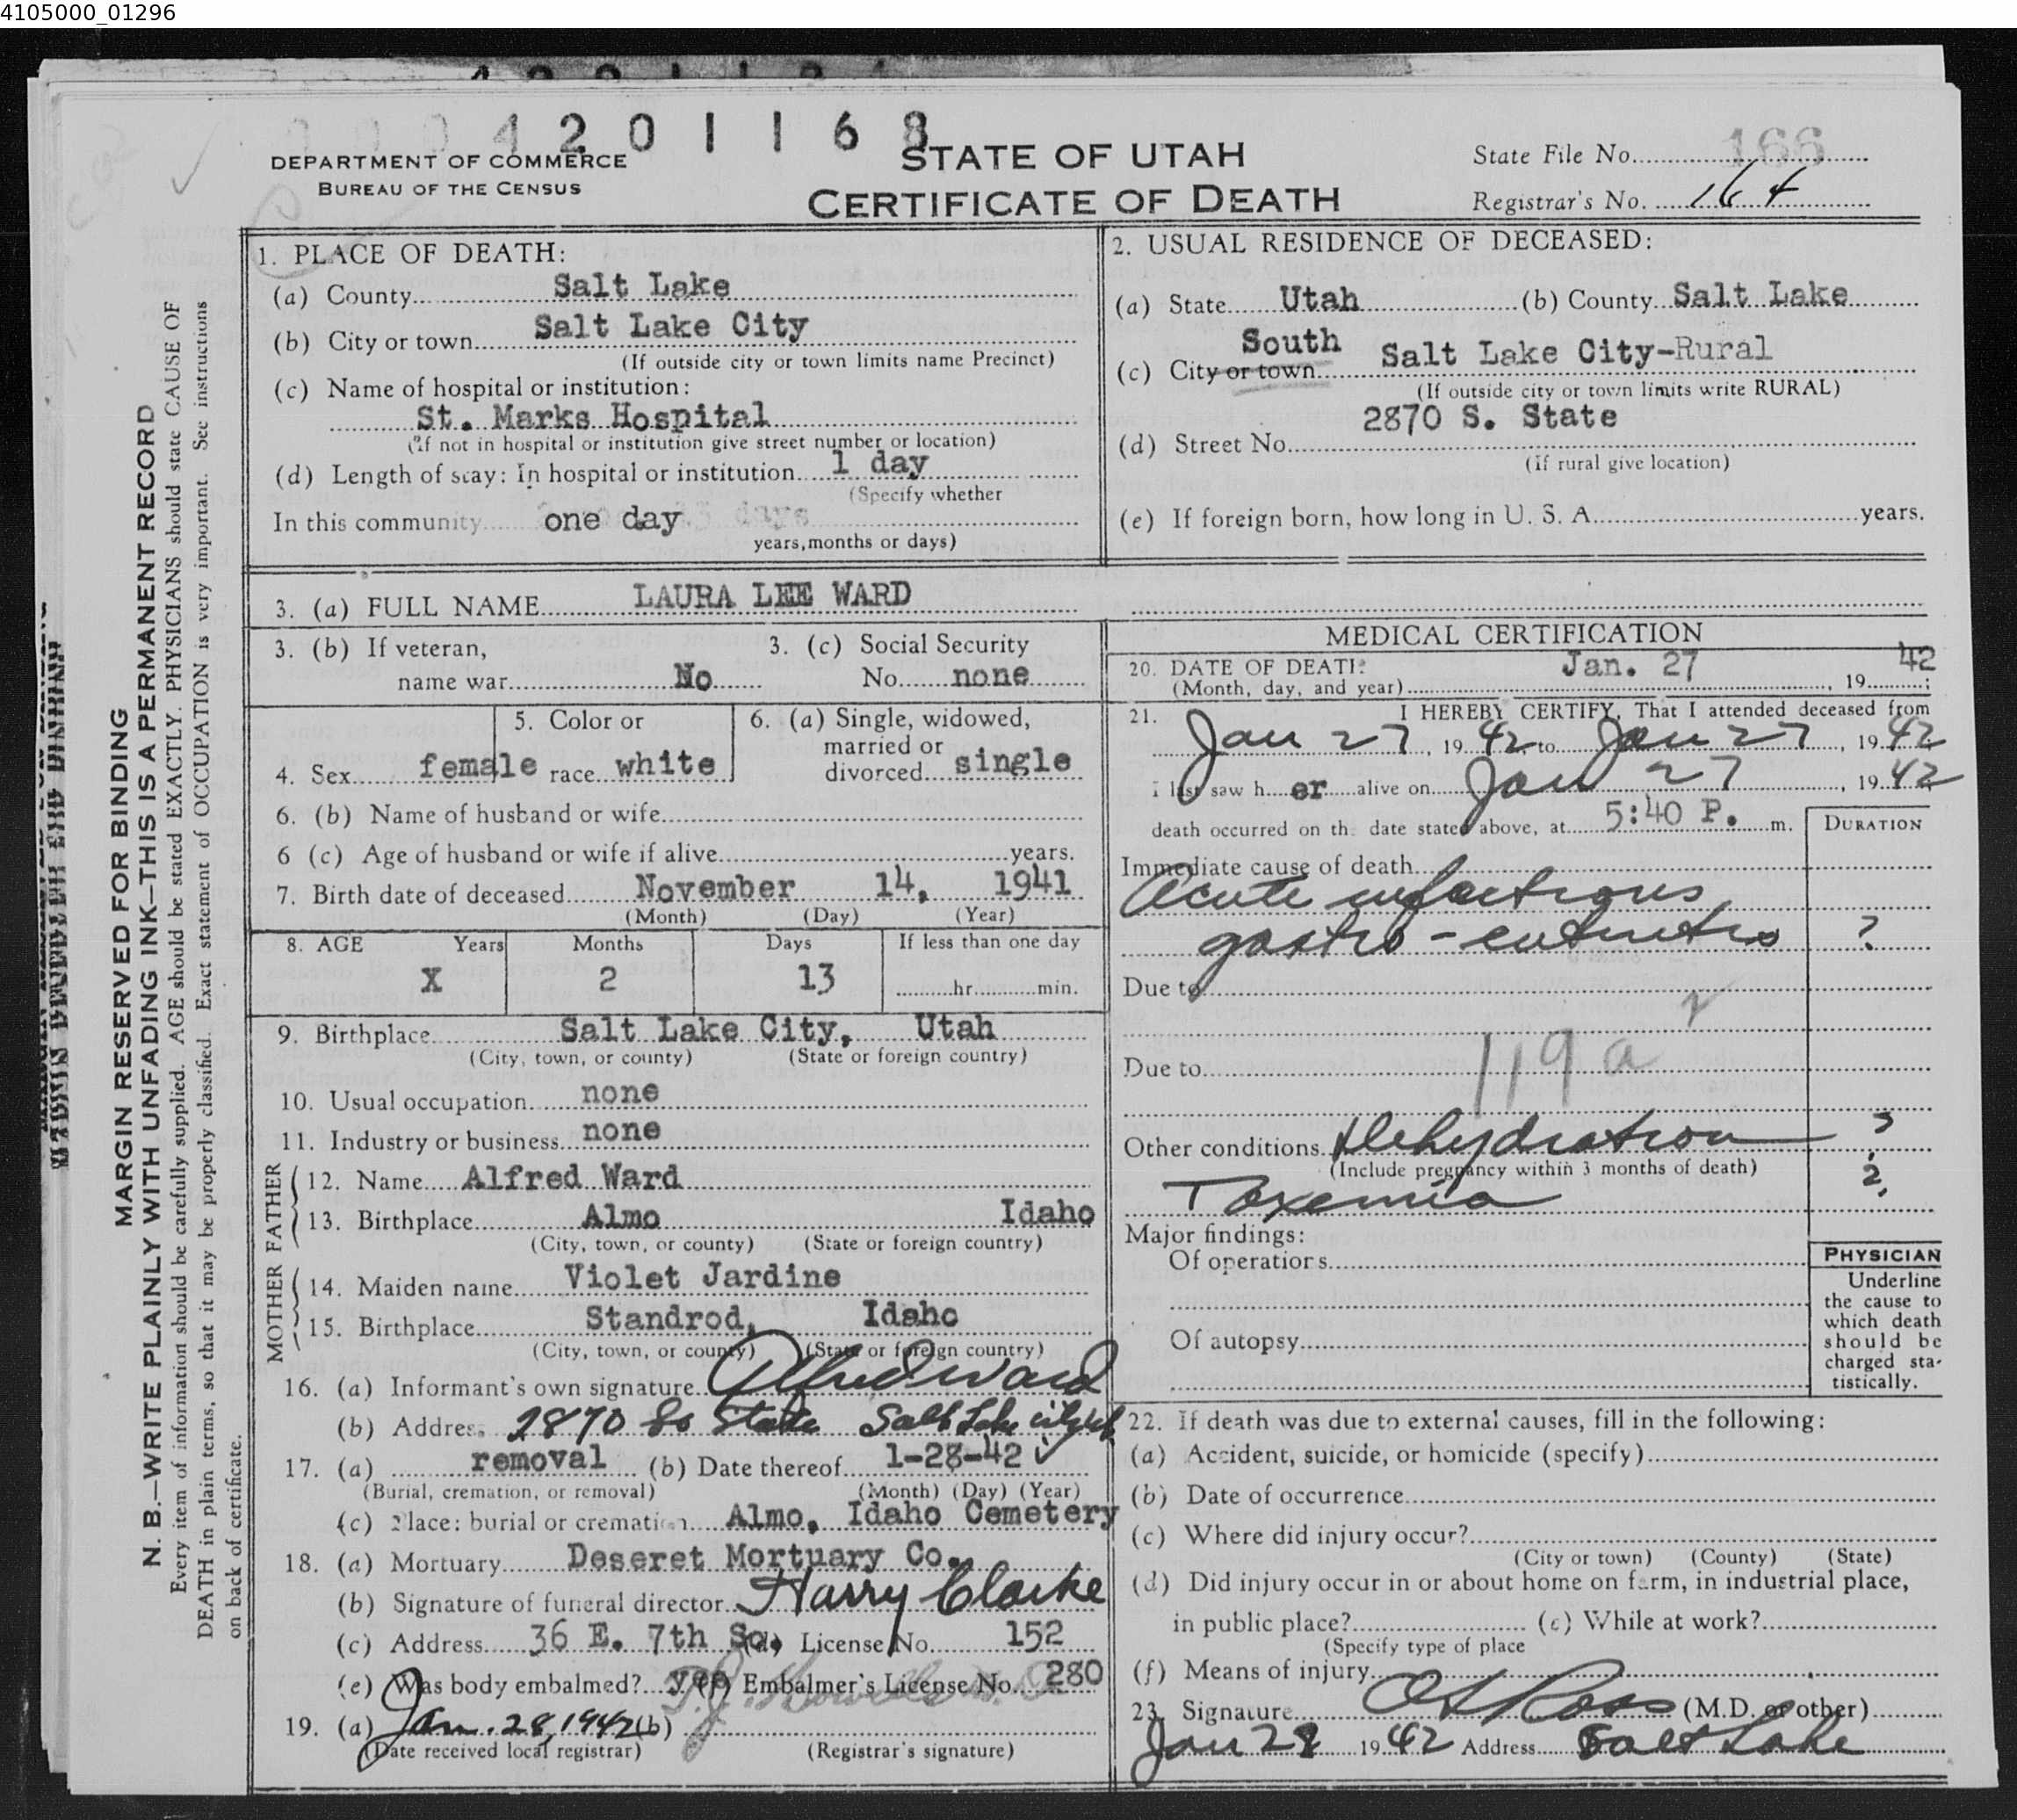 4105000_01296
4 2 0 1 1 6 8
DEPARTMENT OF COMMERCE
BUREAU OF THE CENSUS
STATE OF UTAH
CERTIFICATE OF DEATH
State File No. 166
Registrar's No. 164
MARGIN RESERVED FOR BINDING
N. B.—WRITE PLAINLY WITH UNFADING INK—THIS IS A PERMANENT RECORD
Every item of information should be carefully supplied. AGE should be stated EXACTLY. PHYSICIANS should state CAUSE OF
DEATH in plain terms, so that it may be properly classified. Exact statement of OCCUPATION is very important. See instructions
on back of certificate.
1. PLACE OF DEATH:
(a) County Salt Lake
(b) City or town Salt Lake City
(If outside city or town limits name Precinct)
(c) Name of hospital or institution:
St. Marks Hospital
(If not in hospital or institution give street number or location)
(d) Length of stay: In hospital or institution 1 day
(Specify whether
In this community one day
years, months or days)
2. USUAL RESIDENCE OF DECEASED:
(a) State Utah (b) County Salt Lake
(c) City or town South Salt Lake City-Rural
(If outside city or town limits write RURAL)
2870 S. State
(d) Street No.
(If rural give location)
(e) If foreign born, how long in U. S. A. years.
3. (a) FULL NAME LAURA LEE WARD
3. (b) If veteran,
name war No
3. (c) Social Security
No. none
4. Sex female
5. Color or
race white
6. (a) Single, widowed,
married or
divorced single
6. (b) Name of husband or wife
6 (c) Age of husband or wife if alive years.
7. Birth date of deceased November 14, 1941
(Month) (Day) (Year)
8. AGE Years Months Days If less than one day
X 2 13 hr. min.
9. Birthplace Salt Lake City, Utah
(City, town, or county) (State or foreign country)
10. Usual occupation none
11. Industry or business none
FATHER
12. Name Alfred Ward
13. Birthplace Almo Idaho
(City, town, or county) (State or foreign country)
MOTHER
14. Maiden name Violet Jardine
15. Birthplace Standrod, Idaho
(City, town, or county) (State or foreign country)
16. (a) Informant's own signature Alfred Ward
(b) Address 2870 So State Salt Lake city Ut
17. (a) removal (b) Date thereof 1-28-42
(Burial, cremation, or removal) (Month) (Day) (Year)
(c) Place: burial or cremation Almo, Idaho Cemetery
18. (a) Mortuary Deseret Mortuary Co.
(b) Signature of funeral director Harry Clarke
(c) Address 36 E. 7th So. (d) License No. 152
(e) Was body embalmed? yes (f) Embalmer's License No. 280
19. (a) Jan. 28, 1942 (b)
(Date received local registrar) (Registrar's signature)
MEDICAL CERTIFICATION
20. DATE OF DEATH: Jan. 27 42
(Month, day, and year) , 19 ;
21. I HEREBY CERTIFY, That I attended deceased from
Jan 27, 1942 to Jan 27, 1942
I last saw h er alive on Jan 27, 1942
death occurred on the date stated above, at 5:40 P. m.
DURATION
Immediate cause of death
Acute infectious
gastro-enteritis ?
Due to
119 a
Due to
Other conditions Dehydration ?
(Include pregnancy within 3 months of death)
Toxemia ?
Major findings:
Of operations
Of autopsy
PHYSICIAN
Underline
the cause to
which death
should be
charged sta-
tistically.
22. If death was due to external causes, fill in the following:
(a) Accident, suicide, or homicide (specify)
(b) Date of occurrence
(c) Where did injury occur?
(City or town) (County) (State)
(d) Did injury occur in or about home on farm, in industrial place,
in public place? (e) While at work?
(Specify type of place
(f) Means of injury
23. Signature Ross (M.D. or other)
Jan 28 1942 Address Salt Lake